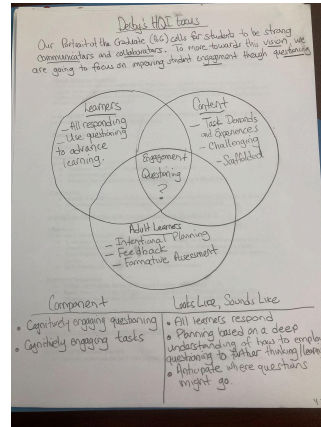 Derby's HQI Focus
Our Portrait of the Graduate (POG) calls for students to be strong
communicators and collaborators. To move towards this vision, we
are going to focus on improving student engagement though questioning.
Learners
- All responding
- Use questioning
to advance
learning.
Content
- Task Demands
and Experiences
- Challenging
- Scaffolded
Engagement
Questioning
?
Adult Learners
- Intentional Planning
- Feedback
- Formative Assessment
Component
• Cognitively engaging questioning
• Cognitively engaging tasks
Looks Like, Sounds Like
• All learners respond
• Planning based on a deep
understanding of how to employ
questioning to further thinking/
• Anticipate where questions
might go.